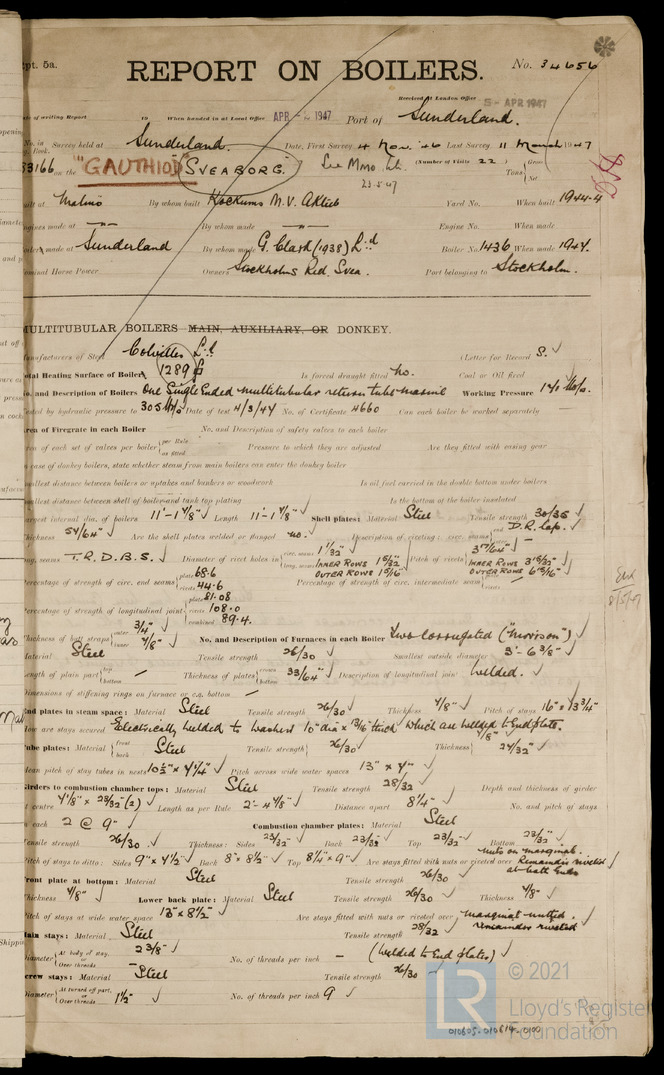 Rpt. 5a.
REPORT ON BOILERS.
No. 34656
Received at London Office 5 - APR 1947
Date of writing Report 19 When handed in at Local Office APR - 2 1947 Port of Sunderland.
No. in Survey held at Sunderland. Date, First Survey 4 Nov. '46 Last Survey 11 March 1947
Reg. Book. (Number of Visits 22) Gross Tons Net
83166 on the "GAUTHIOD" (SVEABORG.) See Mmo
23.5.47
Built at Malmö By whom built Kockums M.V. Aktieb Yard No. When built 1944-4
Engines made at By whom made Engine No. When made
Boilers made at Sunderland By whom made G. Clark (1938) Ltd Boiler No. 1436 When made 1947.
Nominal Horse Power Owners Stockholms Red. Svea. Port belonging to Stockholm.
MULTITUBULAR BOILERS MAIN, AUXILIARY, OR DONKEY.
Manufacturers of Steel Colvilles Ld (Letter for Record S. ✓
Total Heating Surface of Boilers 1289 Is forced draught fitted No. Coal or Oil fired
No. and Description of Boilers One Single Ended multitubular return tube marine Working Pressure
Tested by hydraulic pressure to 305 Date of test 4/3/47 No. of Certificate 4660 Can each boiler be worked separately —
Area of Firegrate in each Boiler No. and Description of safety valves to each boiler
Area of each set of valves per boiler { per Rule as fitted Pressure to which they are adjusted Are they fitted with easing gear
In case of donkey boilers, state whether steam from main boilers can enter the donkey boiler
Smallest distance between boilers or uptakes and bunkers or woodwork Is oil fuel carried in the double bottom under boilers
Smallest distance between shell of boiler and tank top plating Is the bottom of the boiler insulated
Largest internal dia. of boilers 11'-1 7/8" ✓ Length 11'-1 7/8" ✓ Shell plates: Material Steel Tensile strength 30/35 ✓
Thickness 54/64" ✓ Are the shell plates welded or flanged no. Description of riveting: circ. seams end D.R. Lap. ✓
long. seams T.R.D.B.S. ✓ Diameter of rivet holes in { circ. seams 1 1/32" long. seams INNER ROWS 1 5/32" OUTER ROWS 1 5/16" Pitch of rivets INNER ROWS 3 15/32" OUTER ROWS 6 15/16"
Percentage of strength of circ. end seams { plate 68.6 rivets 44.6 Percentage of strength of circ. intermediate seam —
Percentage of strength of longitudinal joint { plate 81.08 rivets 108.0 combined 89.4.
Thickness of butt straps { outer 3/4" inner 7/8" ✓ No. and Description of Furnaces in each Boiler Two Corrugated ("Morison") ✓
Material Steel Tensile strength 26/30 ✓ Smallest outside diameter 3'-6 3/8" ✓
Length of plain part { top bottom — Thickness of plates { crown bottom 33/64" ✓ Description of longitudinal joint Welded. ✓
Dimensions of stiffening rings on furnace or c.c. bottom —
End plates in steam space: Material Steel Tensile strength 26/30 ✓ Thickness 7/8" ✓ Pitch of stays 16" x 13 3/4"
How are stays secured Electrically welded to washers 10" dia x 13/16" thick which are welded to End plate.
Tube plates: Material { front back Steel Tensile strength 26/30 ✓ Thickness { 7/8" ✓ 24/32" ✓
Mean pitch of stay tubes in nests 10 1/2" x 7 1/4" ✓ Pitch across wide water spaces 13" x 7" ✓
Girders to combustion chamber tops: Material Steel Tensile strength 28/32 ✓ Depth and thickness of girder
at centre 7 1/8" x 23/32" (2) ✓ Length as per Rule 2'-4 7/8" ✓ Distance apart 8 1/4" ✓ No. and pitch of stays
in each 2 @ 9" ✓ Combustion chamber plates: Material Steel
Tensile strength 26/30. ✓ Thickness: Sides 23/32" ✓ Back 23/32 ✓ Top 23/32 ✓ Bottom 23/32"
Pitch of stays to ditto: Sides 9" x 7 1/2 ✓ Back 8" x 8 1/2" ✓ Top 8 1/4 x 9" ✓ Are stays fitted with nuts or riveted over nuts on marginal. Remainder riveted at both Ends
Front plate at bottom: Material Steel Tensile strength 26/30 ✓
Thickness 7/8" ✓ Lower back plate: Material Steel Tensile strength 26/30 ✓ Thickness 7/8" ✓
Pitch of stays at wide water space 13" x 8 1/2" ✓ Are stays fitted with nuts or riveted over Marginal nutted. remainder riveted
Main stays: Material Steel Tensile strength 28/32 ✓
Diameter { At body of stay, or Over threads 2 3/8" ✓ No. of threads per inch — (Welded to End plates) ✓
Screw stays: Material Steel Tensile strength 26/30 ✓
Diameter { At turned off part, or Over threads 1 1/2" ✓ No. of threads per inch 9 ✓
© 2021
Lloyd's Register
Foundation
LR
010605-010614-0100